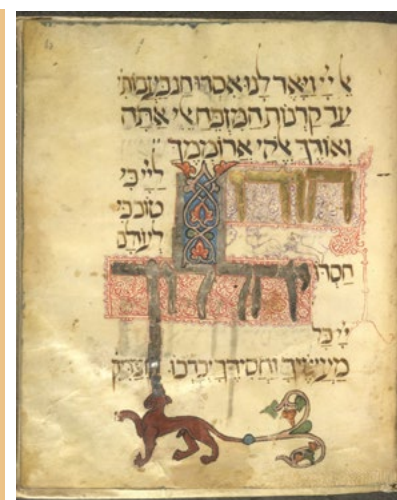 אל יי ויאר לנו אסרו חג בעבתי
עד קרנות המזבח אלי אתה
ואודך אלקי ארוממך
הודו ליי כי
טוב כי
לעולם
חסדו
יהללוך
יי כל
מעשיך וחסידיך יברכו